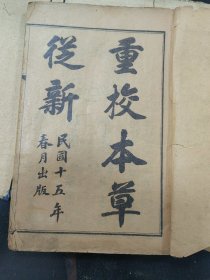 重校本草
從新
民國十五年
春月出版